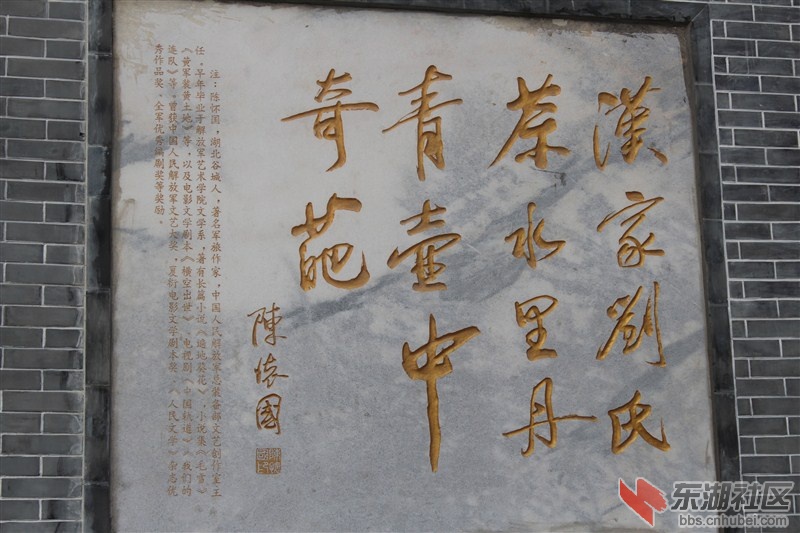 漢家劉氏
茶水里丹
青壺中
奇葩
陳懷國
注：陈怀国，湖北谷城人，著名军旅作家，中国人民解放军总装备部文艺创作室主
任，早年毕业于解放军艺术学院文学系，著有长篇小说《遍地葵花》，小说集《毛雪》、
《黄军装黄土地》等，以及电影文学剧本《横空出世》，电视剧《中国轨道》、《我们的
连队》等，曾获中国人民解放军文艺大奖，夏衍电影文学剧本奖，《人民文学》杂志优
秀作品奖，全军优秀编剧奖等奖励。
东湖社区
bbs.cnhubei.com